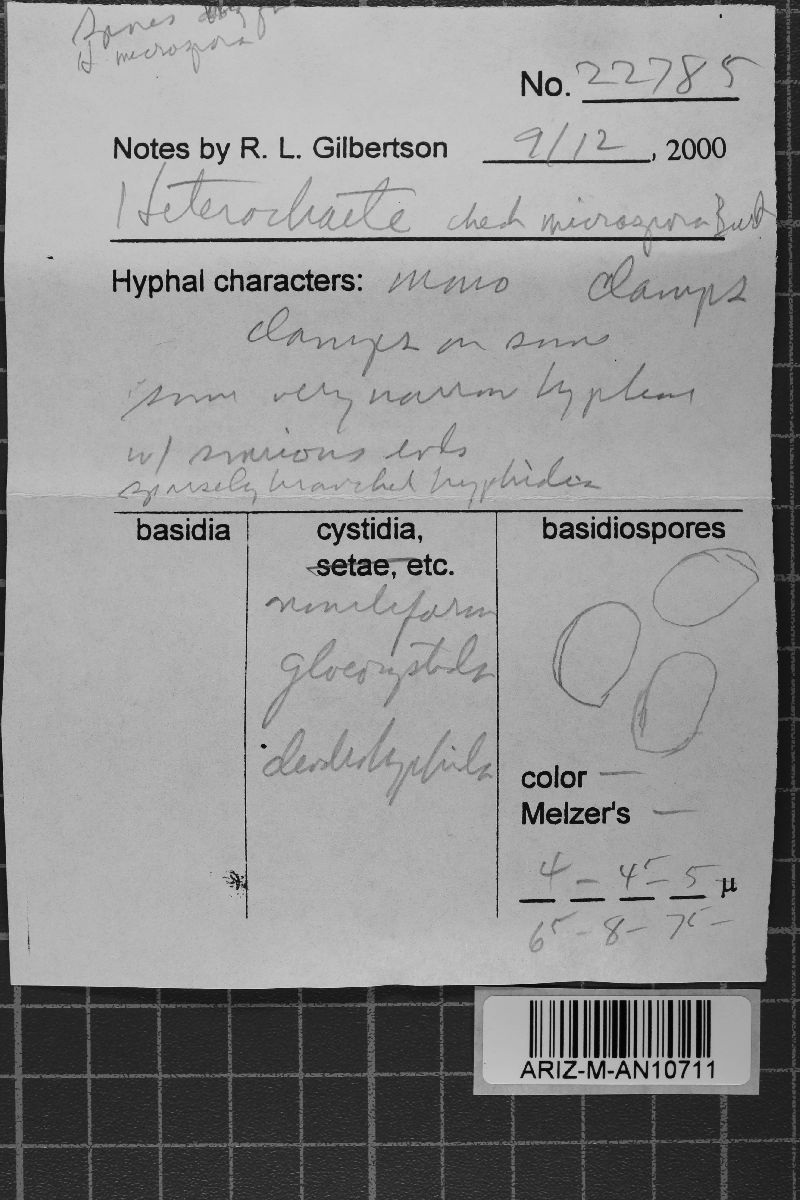 Spores
H microspora
No. 22785
Notes by R. L. Gilbertson 9/12, 2000
Heterochaete check microspora Burt
Hyphal characters: mono clamps
clamps on some
some very narrow hyphae
w/ ends
sparsely branched hyphidia
basidia
cystidia,
setae, etc.
moniliform
gloeocystidia
dendrohyphidia
basidiospores
color —
Melzer's —
4 – 4⁵ – 5 µ
6⁵ – 8 – 7⁵ –
ARIZ-M-AN10711